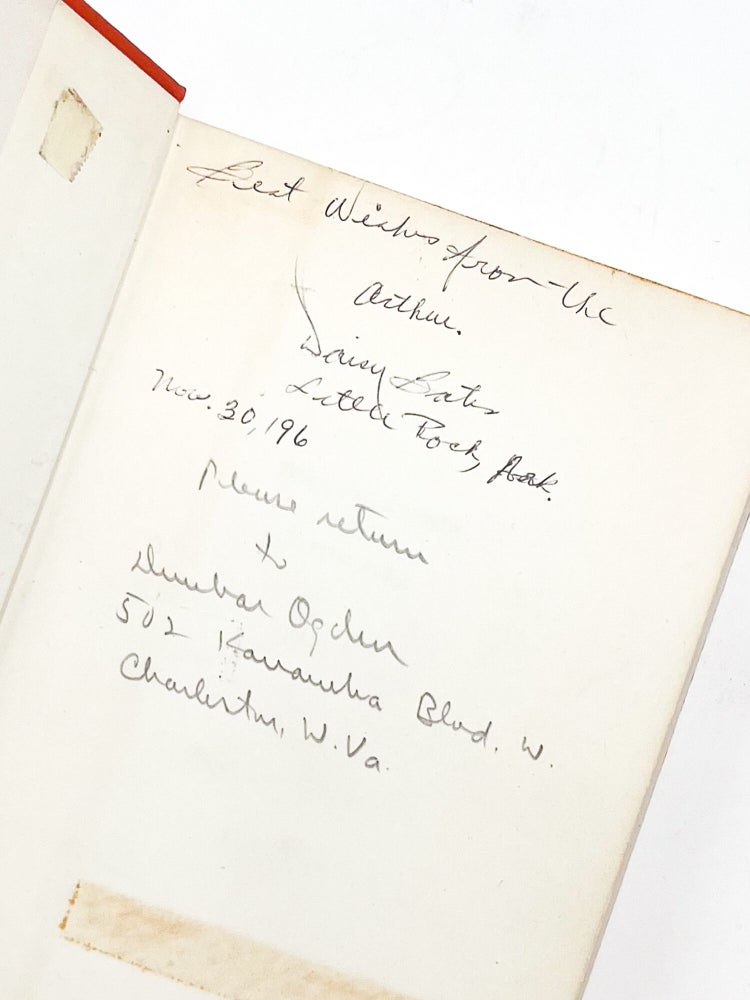 Best Wishes from the
Arthur.
Daisy Bates
Little Rock, Ark.
Nov. 30, 196
Please return
to
Dunbar Ogden
502 Kanawha Blvd. W.
Charleston, W. Va.